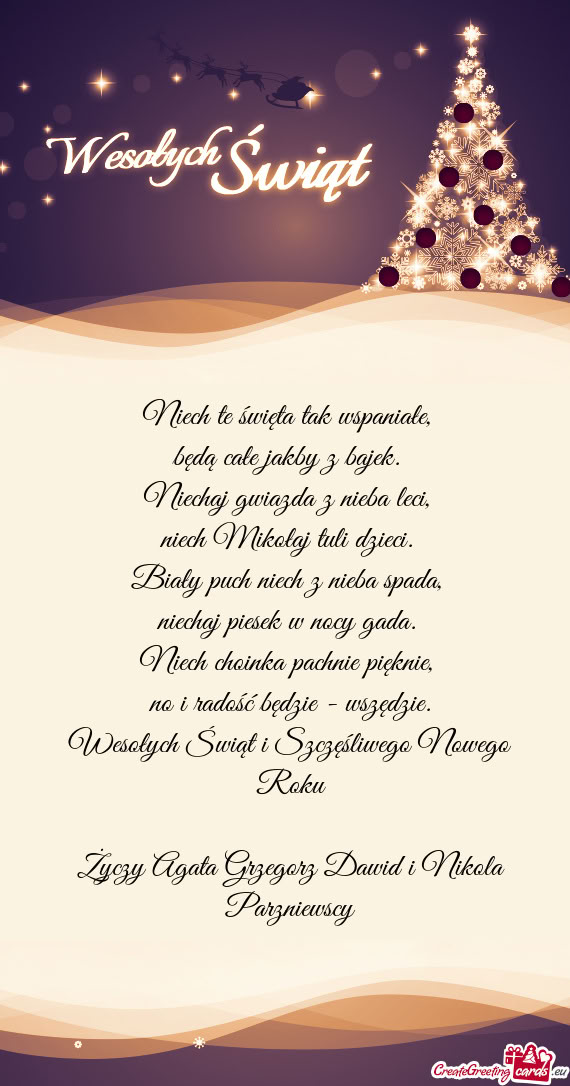 Wesołych Świąt
Niech te święta tak wspaniałe,
będą całe jakby z bajek.
Niechaj gwiazda z nieba leci,
niech Mikołaj tuli dzieci.
Biały puch niech z nieba spada,
niechaj piesek w nocy gada.
Niech choinka pachnie pięknie,
no i radość będzie - wszędzie.
Wesołych Świąt i Szczęśliwego Nowego
Roku
Życzy Agata Grzegorz Dawid i Nikola
Parzniewscy
CreateGreetingcards.eu